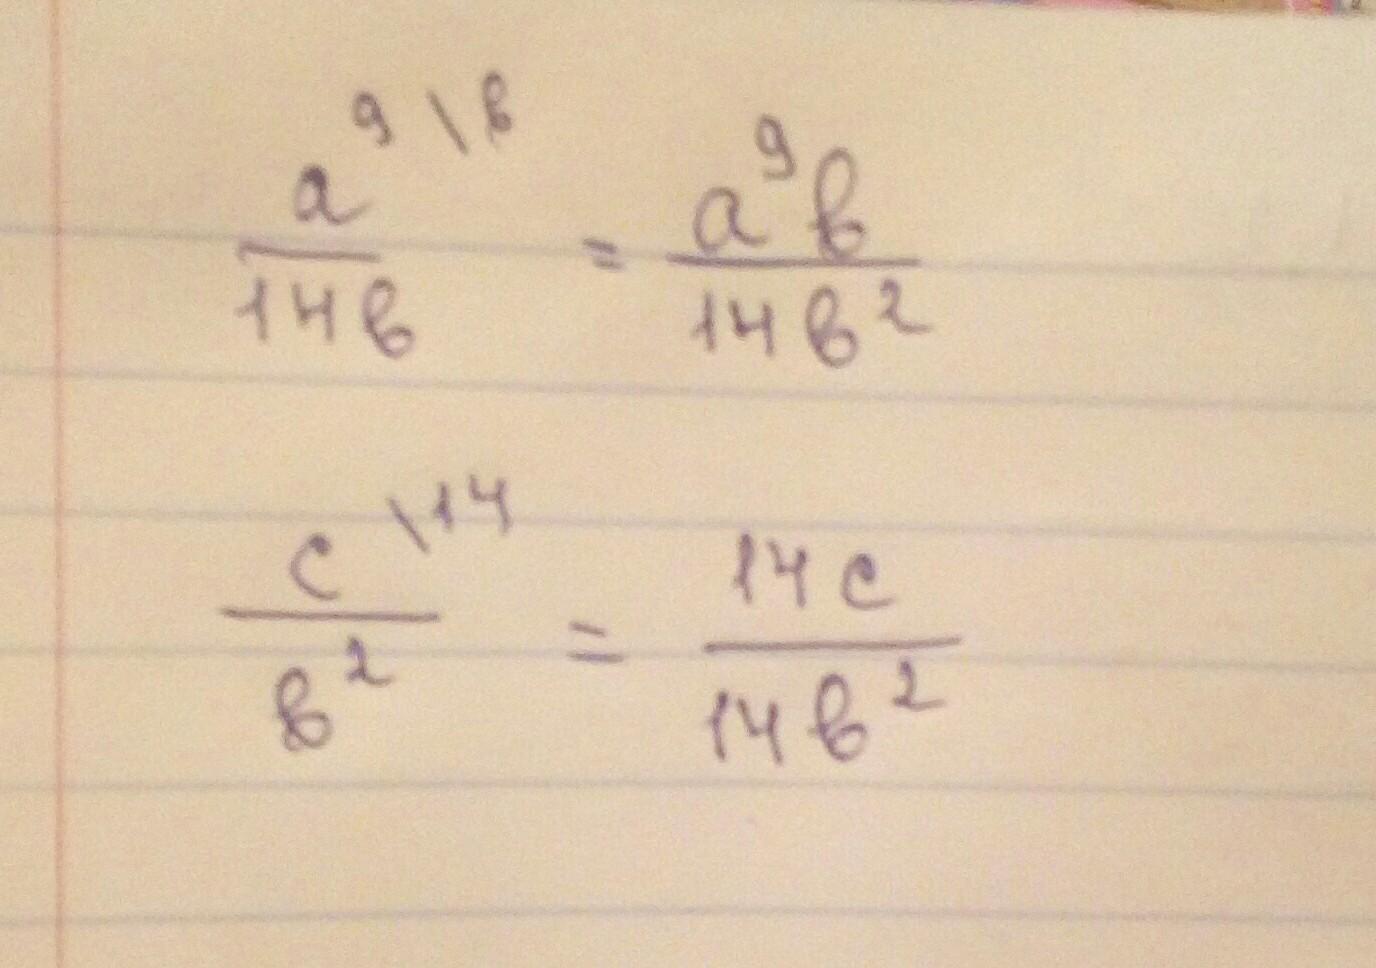 a⁹ \b / 14b = a⁹b / 14b²
c \14 / b² = 14c / 14b²